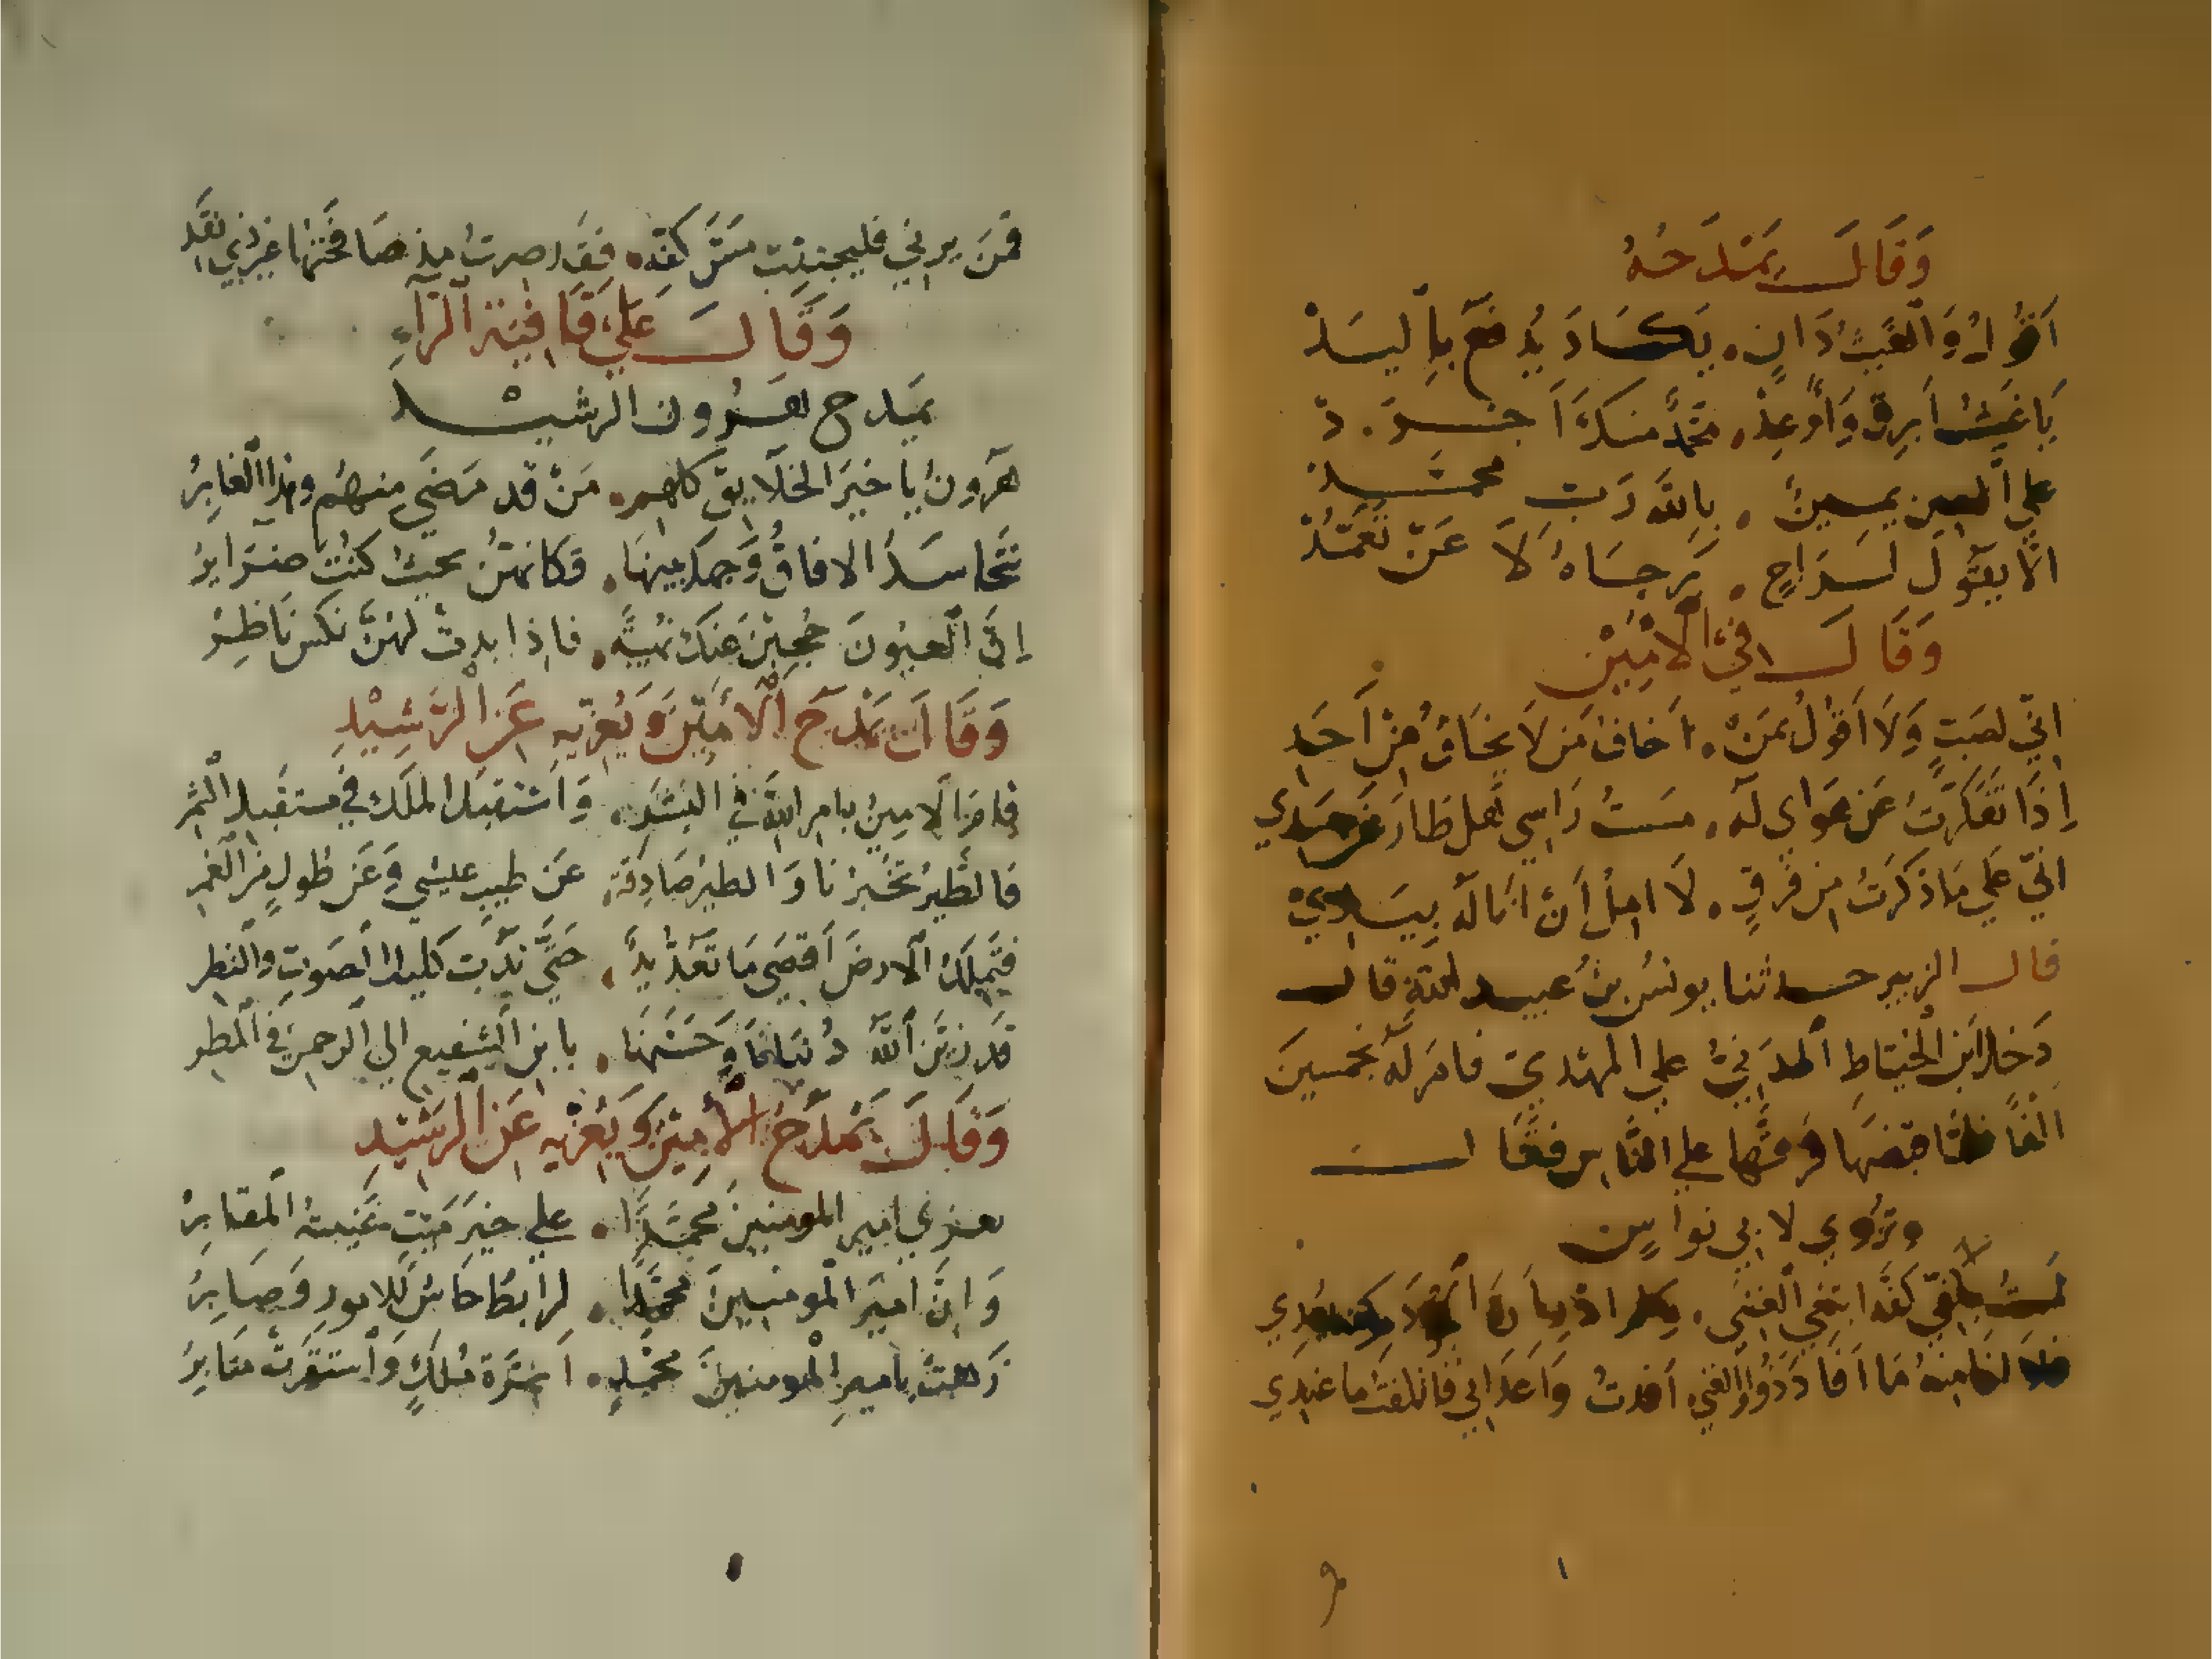 وَقَالَ يَمْدَحُهُ
اَقُولُ وَالغَيْثُ دَانٍ . يَكَادُ يُدفَعُ بِاليَدْ
يَاغَيثُ اَبرِق وَاَرعِدْ . مُحَمَّدٌ منكَ اَجْوَدْ
علي اليمين يمينٌ . بِاللهِ رَبِ مُحَمَّدْ
اَلَّا يقَولَ لرَاجٍ . يرجَاهُ لَا عَن تَعَمُّدْ
وَقَالَ فِي الاَمِيْنْ
انِّي لصَبٌ وَلَا اَقولُ بمَنْ . اَخافُ مَن لَا يخَافُ مِنْ اَحَدِ
اِذَا تفكّرتُ عَن هَوَاي لَهُ . مَسستُ رَاسِي هَل طَارَ عَن جَسَدِي
انّي عَلي مَا ذكَرتُ مِن فَرَقٍ . لَا امِلٌ اَنْ اَنَالَهُ بِيَدِي
قال الزبير حدثنا يونسُ بنُ عبيد الله قَال
دَخَل ابنُ الخيَاطِ المَدَنِيُّ علي المهدي فامَرَ لَهُ بخمسِينَ
الفًا فلمَّا قبضَهَا فَرقهَا علي النَّاسِ فقَال
وتُروي لابي نواسٍ
لمستُ بكفّي كَفَّه ابتَغي الغِنَي . ولم ادر اَنَّ الجُودَ من كفه يُعدِي
فلا انا منهُ مَا اَفَادَ ذَوُو الغِنَي افدتُ وَاَعدَاني فَاتلفتُ ما عِندِي
فمَن يرني فليجتنب مَسَّ كفِّه . فقَد صِرتُ مذ صَافحتُهَا غيرَ ذي نقَد
وَقَالَ عَلَي قَافِيَةِ الرَّآءِ
يمدح هَرُون الرشيد
هَرونُ يا خيرَ الخلَايِق كلهم . مَنْ قد مَضَي منهُم وَهذا الغَابِرُ
تتَحاسَدُ الافاقُ وَجهَكَ بينهَا . فكانهنّ بحيثُ كنتَ ضرَايرُ
اِنَّ العيُونَ حُجِبْنَ عَنكَ بهَيبَةٍ . فاِذا بدوتَ لهُنَّ نكسَ نَاظِرُ
وَقَالَ يَمْدَحُ الاَمِيْنَ وَيُعَزِّيهِ عَنِ الرَّشِيْدِ
قامَ الامِينُ بامرِ اللهِ في البَشَرِ . وَاَستقبَلَ المُلكَ في مستقبَلِ الثمَرِ
فَالطَّيرُ تُخبِرُنَا وَالطيرُ صَادِقةٌ عَن طيبِ عيشٍ وَعَن طُولٍ مِنَ العُمرِ
فيَملِكُ الارضَ اَقصَي مَا تعَدّ يَدٌ . حَتَّي نَدِبَ كليلَ الصَوتِ وَالنظرِ
قد زيَّنَ اللهُ دُنيَانَا وَحَسَّنَهَا . يا ابنَ الشفيعِ الي الرحمنِ في المَطرِ
وَقَالَ يَمْدَحُ الاَمِيْنَ وَيُعَزِّيهِ عَنِ الرَشِيْدِ
نعزي اميرَ المومنينَ مُحَمَّدًا . علي خيرِ مَيتٍ غَيبتهُ المقَابِرُ
وَاِنَّ اميرَ المومنينَ مُحمَّدًا . لَرَابطُ جَاشٍ للامورِ وَصَابِرُ
زَهَتْ بِاَميرِ المومنينَ مُحَمَّدٍ . اَسِرَّةُ مُلكٍ وَاَستقرَتْ مَنَابِرُ